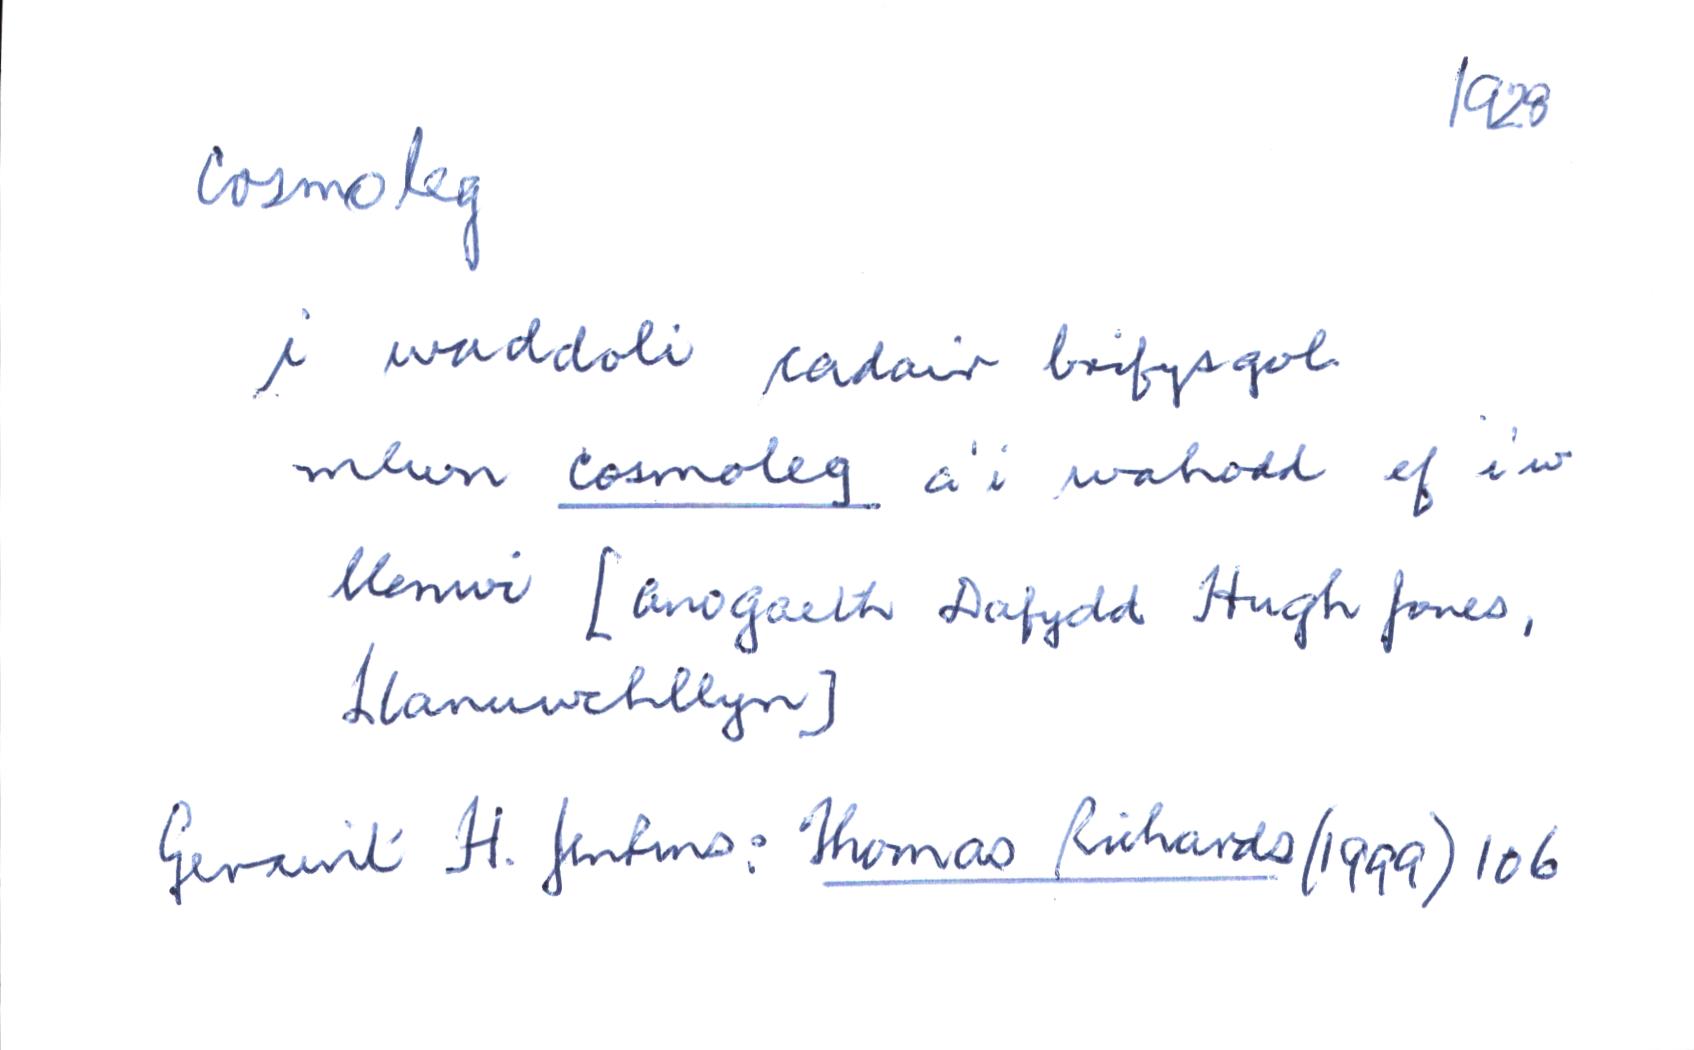 1928
Cosmoleg
i waddoli cadair brifysgol
mlwn cosmoleg a'i wahodd ef i'w
llenwi [anogaeth Dafydd Hugh Jones,
Llanuwchllyn]
Geraint H. Jenkins: Thomas Richards (1999) 106